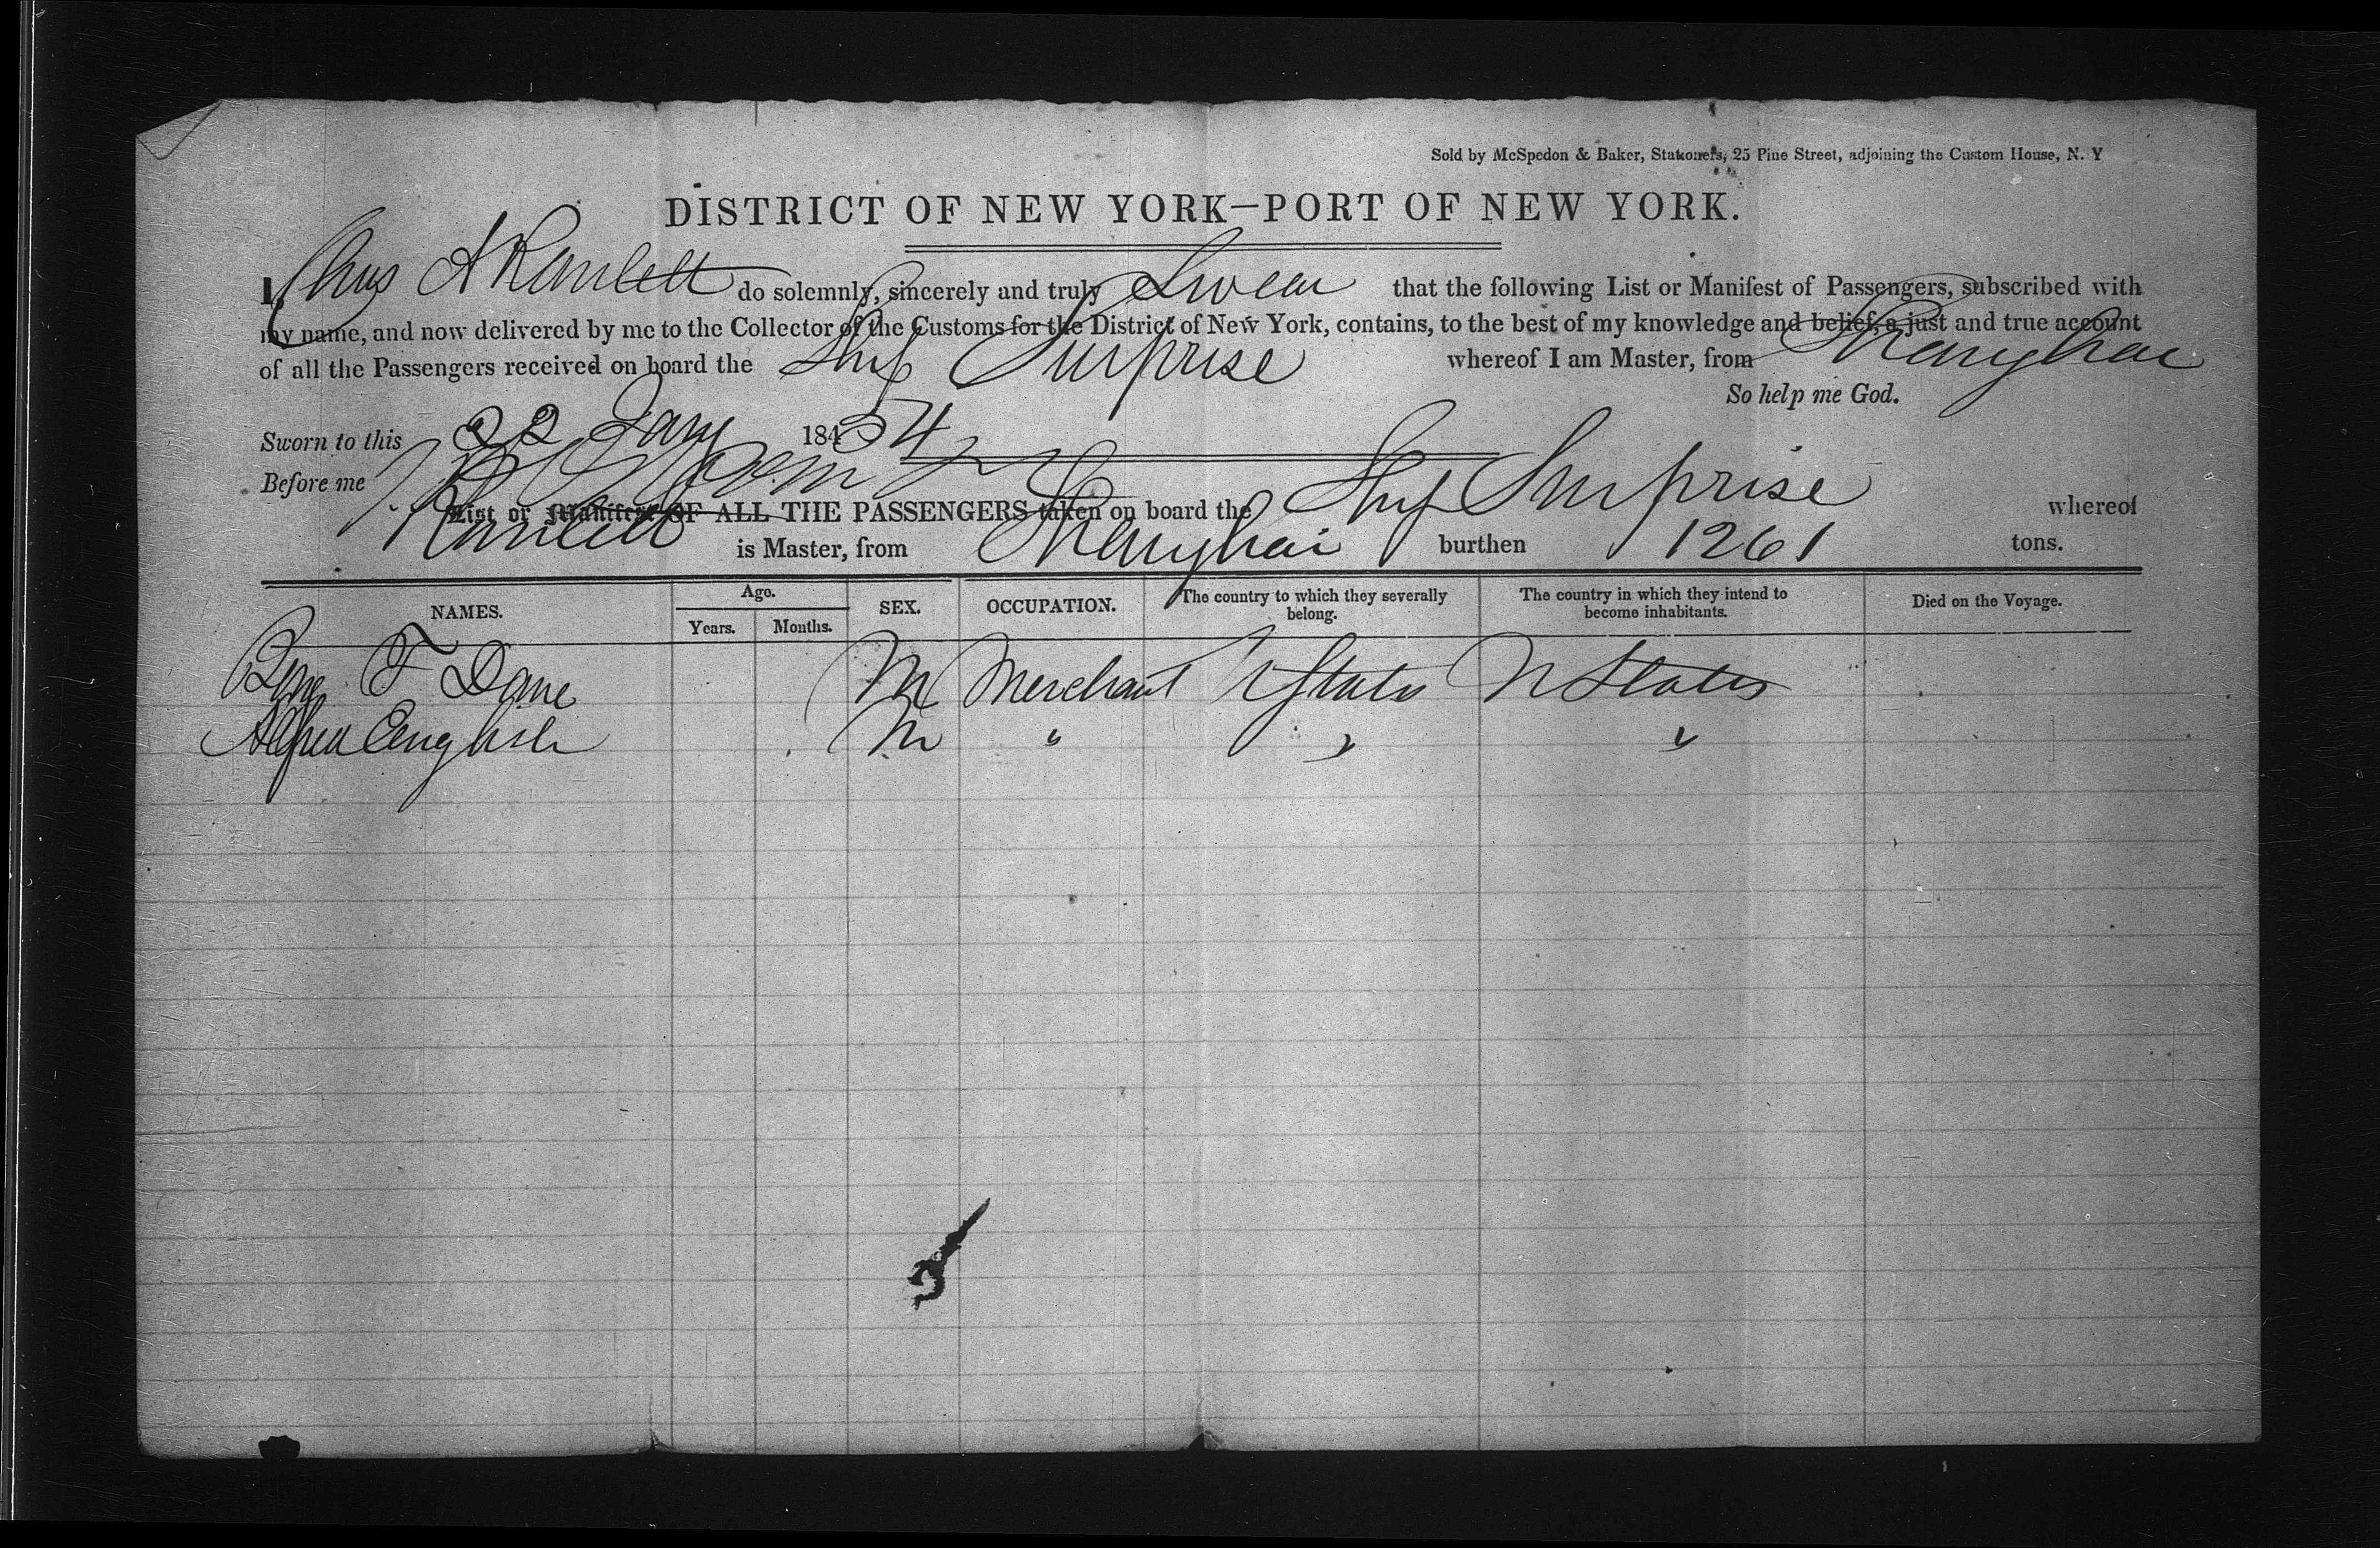 Sold by McSpedon & Baker, Stationers, 25 Pine Street, adjoining the Custom House, N. Y
DISTRICT OF NEW YORK—PORT OF NEW YORK.
I, Chas A Ranlett do solemnly, sincerely and truly Swear that the following List or Manifest of Passengers, subscribed with
my name, and now delivered by me to the Collector of the Customs for the District of New York, contains, to the best of my knowledge and belief, a just and true account
of all the Passengers received on board the Ship Surprise whereof I am Master, from Shanghai
So help me God.
Sworn to this 22 Jany 184 54
Before me
List or Manifest OF ALL THE PASSENGERS taken on board the Ship Surprise whereof
Ranlett is Master, from Shanghai burthen 1261 tons.
NAMES. Age. Years. Months. SEX. OCCUPATION. The country to which they severally belong. The country in which they intend to become inhabitants. Died on the Voyage.
Benj F Dane M Merchant U States U States
Alfred English M " " "